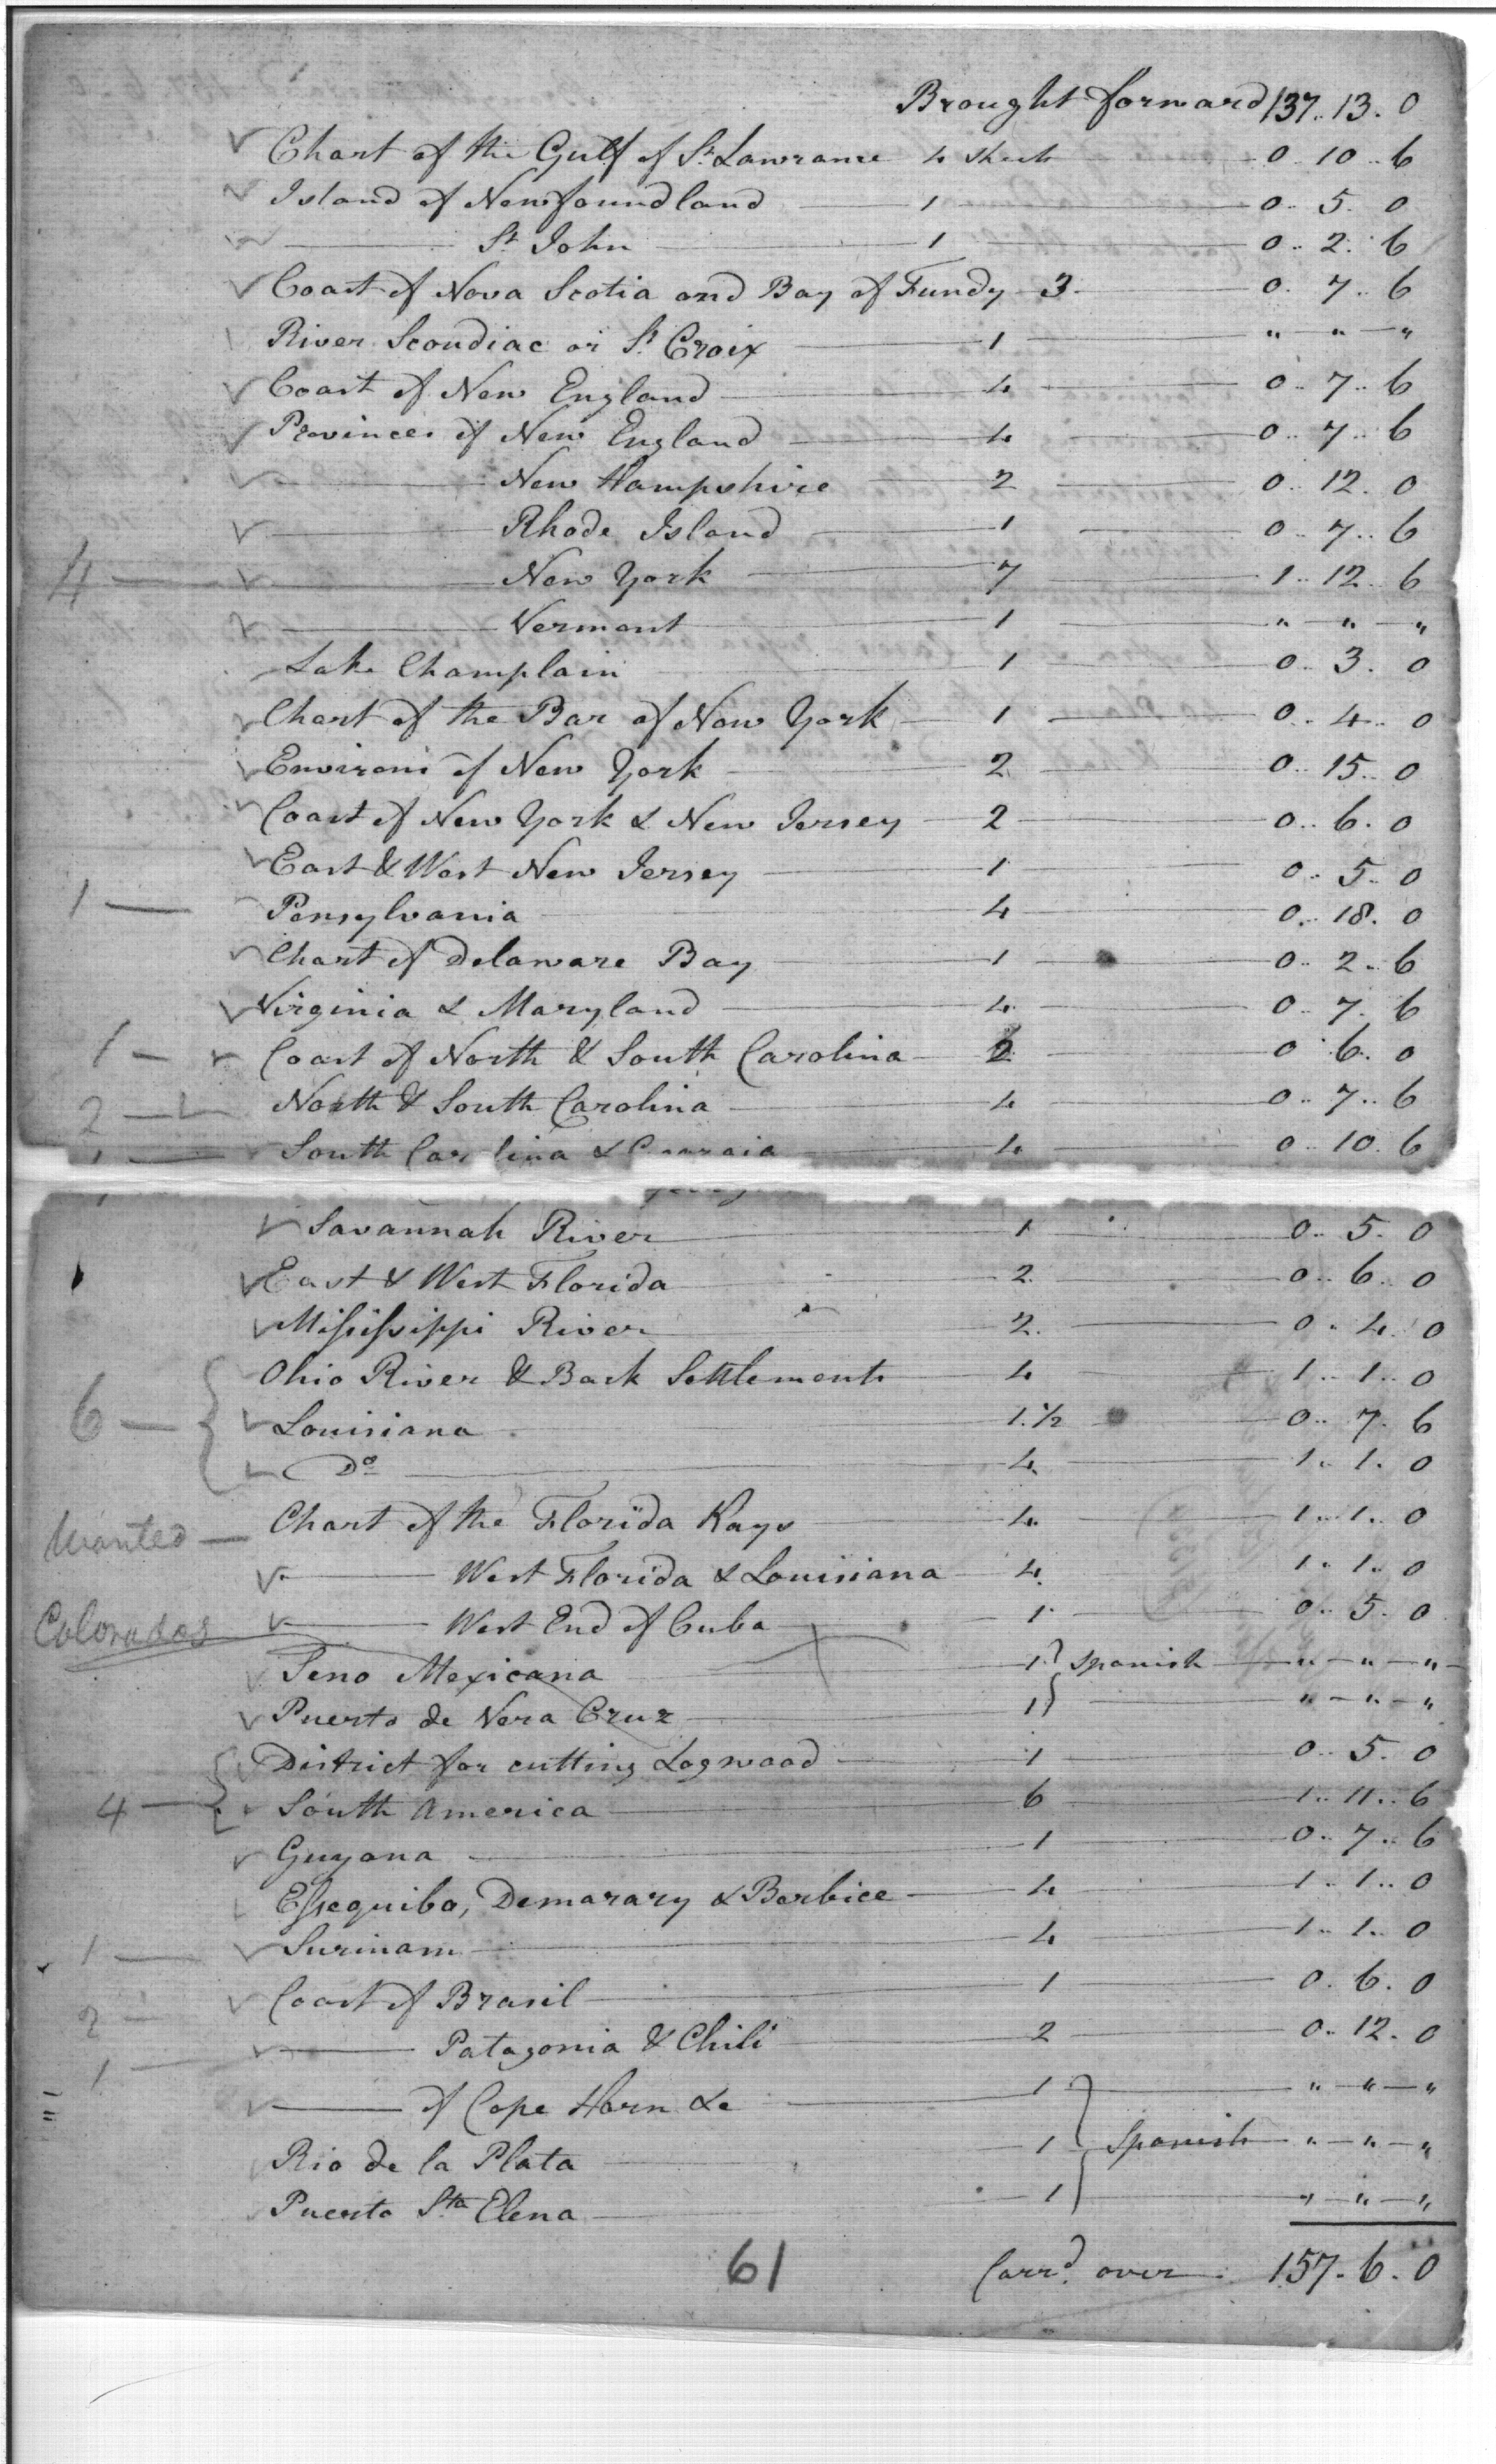 Brought forward 137..13.0
Chart of the Gulf of St Lawrance 4 Sheets 0..10..6
Island of Newfoundland 1 0..5.0
St John 1 0..2.6
Coast of Nova Scotia and Bay of Fundy 3 0.7..6
River Scoudiac or St Croix 1 " — " — "
Coast of New England 4 0..7..6
Provinces of New England 4 0..7..6
New Hampshire 2 0..12.0
Rhode Island 1 0..7..6
4 — New York 7 1..12..6
Vermont 1 " — " — "
Lake Champlain 1 0..3.0
Chart of the Bar of New York 1 0..4..0
Environs of New York 2 0..15..0
Coast of New York & New Jersey 2 0..6.0
East & West New Jersey 1 0..5..0
1 — Pensylvania 4 0..18.0
Chart of Delaware Bay 1 0..2..6
Virginia & Maryland 4 0..7.6
1 — Coast of North & South Carolina 2 0.6.0
2 — North & South Carolina 4 0..7..6
South Carolina & Georgia 4 0..10.6
Savannah River 1 0..5.0
East & West Florida 2 0..6.0
Mississippi River 2 0.4.0
Ohio River & Back Settlements 4 1..1..0
6 — Louisiana 1.1/2 0..7.6
Do 4 1..1.0
Wanted — Chart of the Florida Kays 4 1..1..0
West Florida & Louisiana 4 1..1..0
Colorados West End of Cuba 1 0..5.0
Seno Mexicana 1 Spanish " — " — "
Puerto de Vera Cruz 1 " — " — "
District for cutting Logwood 1 0..5.0
4 — South America 6 1..11..6
Guyana 1 0..7..6
Essequibo, Demarary & Berbice 4 1..1..0
1 — Surinam 4 1..1..0
2 — Coast of Brasil 1 0.6.0
1 — Patagonia & Chili 2 0..12.0
of Cape Horn &c 1 " — " — "
Rio de la Plata 1 Spanish " — " — "
Puerto Sta Elena 1 " — " — "
61 Carrd. over 157.6.0